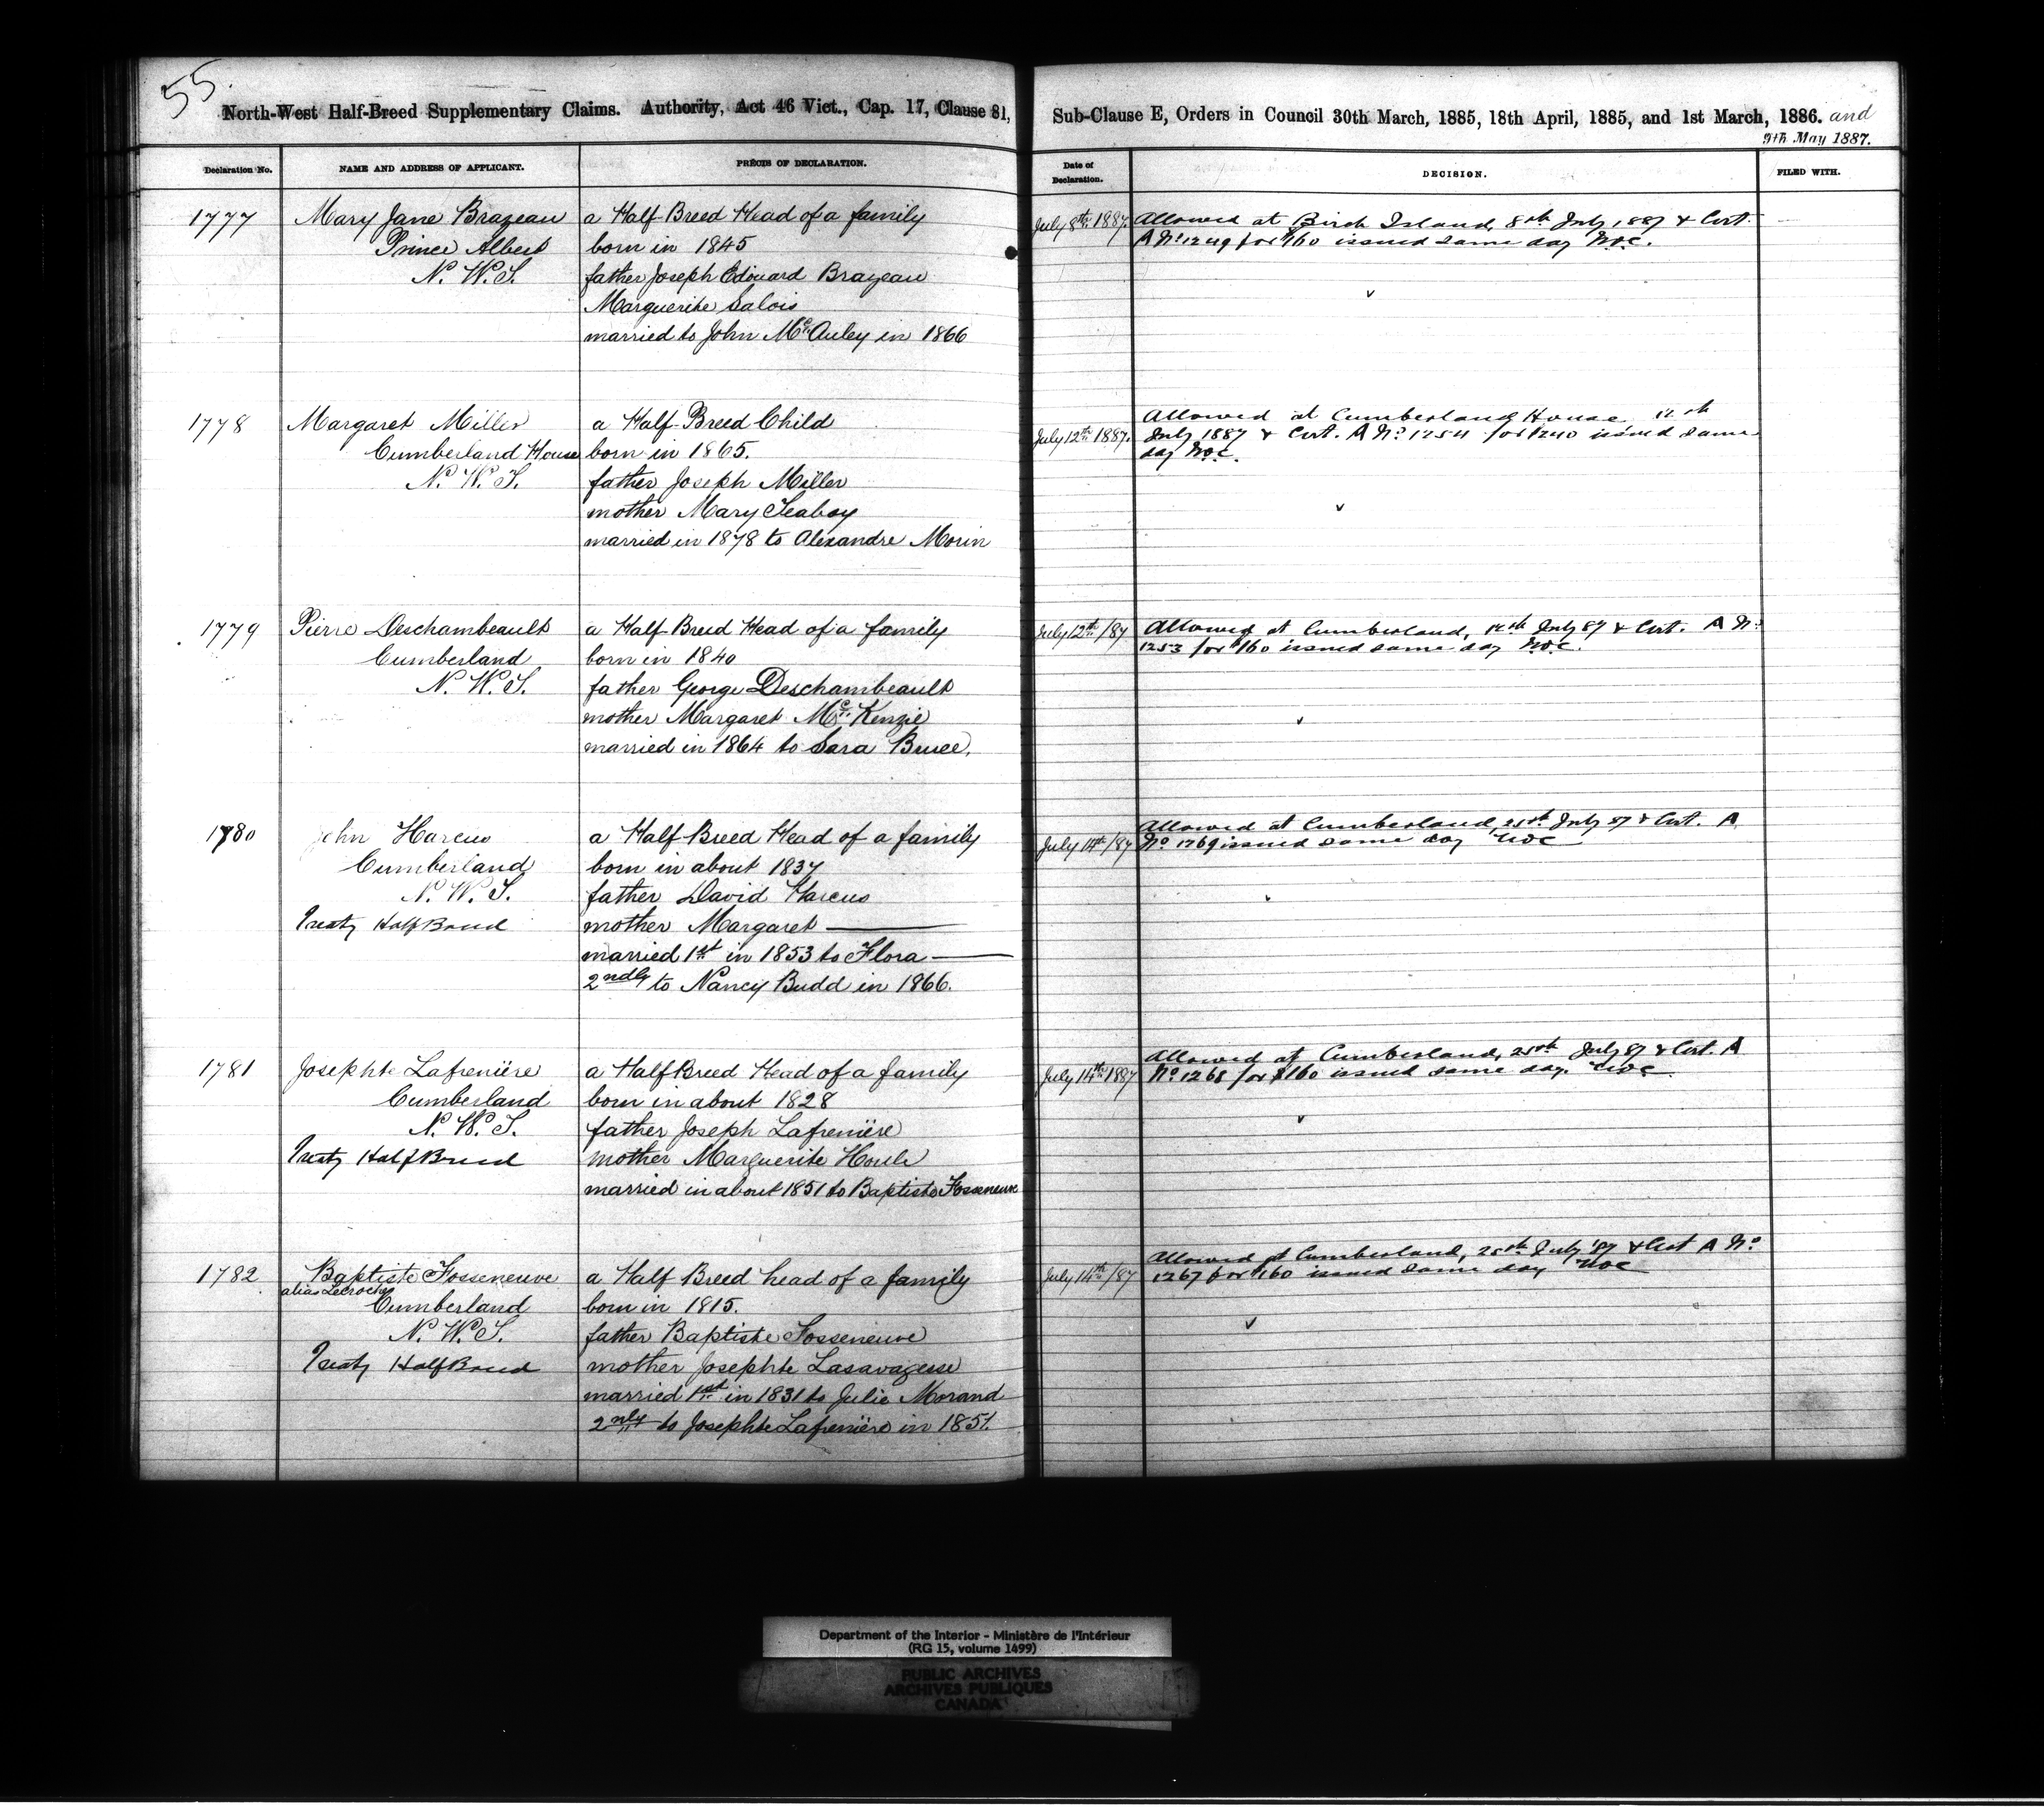 55.
North-West Half-Breed Supplementary Claims. Authority, Act 46 Vict., Cap. 17, Clause 81, Sub-Clause E, Orders in Council 30th March, 1885, 18th April, 1885, and 1st March, 1886. and
9th May 1887.
Declaration No. NAME AND ADDRESS OF APPLICANT. PRÉCIS OF DECLARATION. Date of Declaration. DECISION. FILED WITH.
1777 Mary Jane Brazeau
Prince Albert
N. W. T.
a Half-Breed Head of a family
born in 1845
father Joseph Edouard Brazeau
Marguerite Salois
married to John McAuley in 1866
July 8th 1887.
Allowed at Birch Island, 8th July, 1887 & Cert.
A No 1249 for $160 issued same day N.O.C.
1778 Margaret Miller
Cumberland House
N. W. T.
a Half-Breed Child
born in 1865.
father Joseph Miller
mother Mary Seaboy
married in 1878 to Alexandre Morin
July 12th 1887.
Allowed at Cumberland House, 12th
July 1887 & Cert. A No 1254 for $240 issued same
day N.O.C.
1779 Pierre Deschambeault
Cumberland
N. W. T.
a Half-Breed Head of a family
born in 1840
father George Deschambeault
mother Margaret McKenzie
married in 1864 to Sara Bruce.
July 12th/87
Allowed at Cumberland, 12th July 87 & Cert. A No
1253 for $160 issued same day N.O.C.
1780 John Harcus
Cumberland
N. W. T.
Treaty Half Breed
a Half-Breed Head of a family
born in about 1837
father David Harcus
mother Margaret ———
married 1st in 1853 to Flora ———
2ndly to Nancy Budd in 1866.
July 14th/87
Allowed at Cumberland, 25th July 87 & Cert. A
No 1269 issued same day N.O.C
1781 Josephte Lafrenière
Cumberland
N. W. T.
Treaty Half Breed
a Half Breed Head of a family
born in about 1828
father Joseph Lafrenière
mother Marguerite Houle
married in about 1851 to Baptiste Fosseneuve
July 14th 1887
Allowed at Cumberland, 25th July 87 & Cert. A
No 1268 for $160 issued same day. N.O.C
1782 Baptiste Fosseneuve
alias Lecroche
Cumberland
N. W. T.
Treaty Half Breed
a Half Breed head of a family
born in 1815.
father Baptiste Fosseneuve
mother Josephte Lasavagesse
married 1st in 1831 to Julie Morand
2nly to Josephte Lafrenière in 1851.
July 14th/87
Allowed at Cumberland, 25th July '87 & Cert A No
1267 for $160 issued same day N.O.C
Department of the Interior - Ministère de l'Intérieur
(RG 15, volume 1499)
PUBLIC ARCHIVES
ARCHIVES PUBLIQUES
CANADA